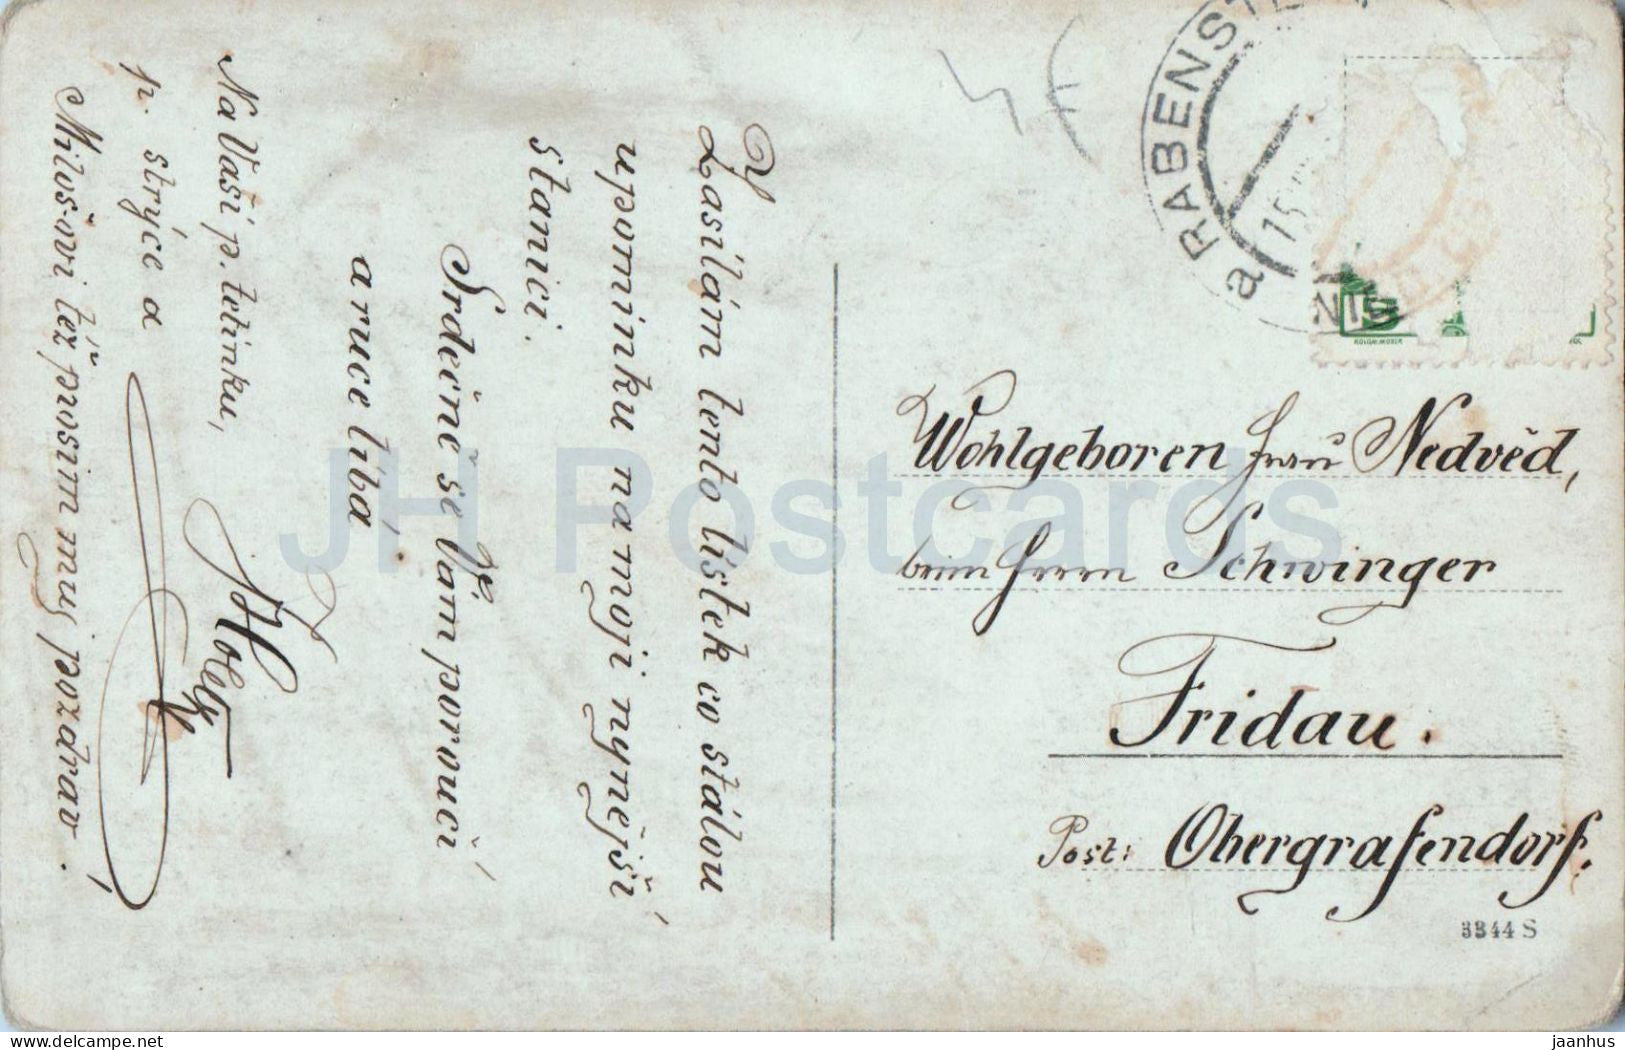 Zasílám tento lístek co stálou
upomínku na moji nynější
stanici.
Srdečně se Vám poroučí
a ruce líbá
Na Vaší p. tetinku,
p. strýce a
Miloš-ovi též prosím muj pozdrav.
RABENSTE
a 15
NIS
5
KOLOM.MOSER
Wohlgeboren Frau Nedvěd,
beim Herrn Schwinger
Fridau.
Post: Obergrafendorf.
3344 S
JH Postcards
delcampe.net
jaanhus